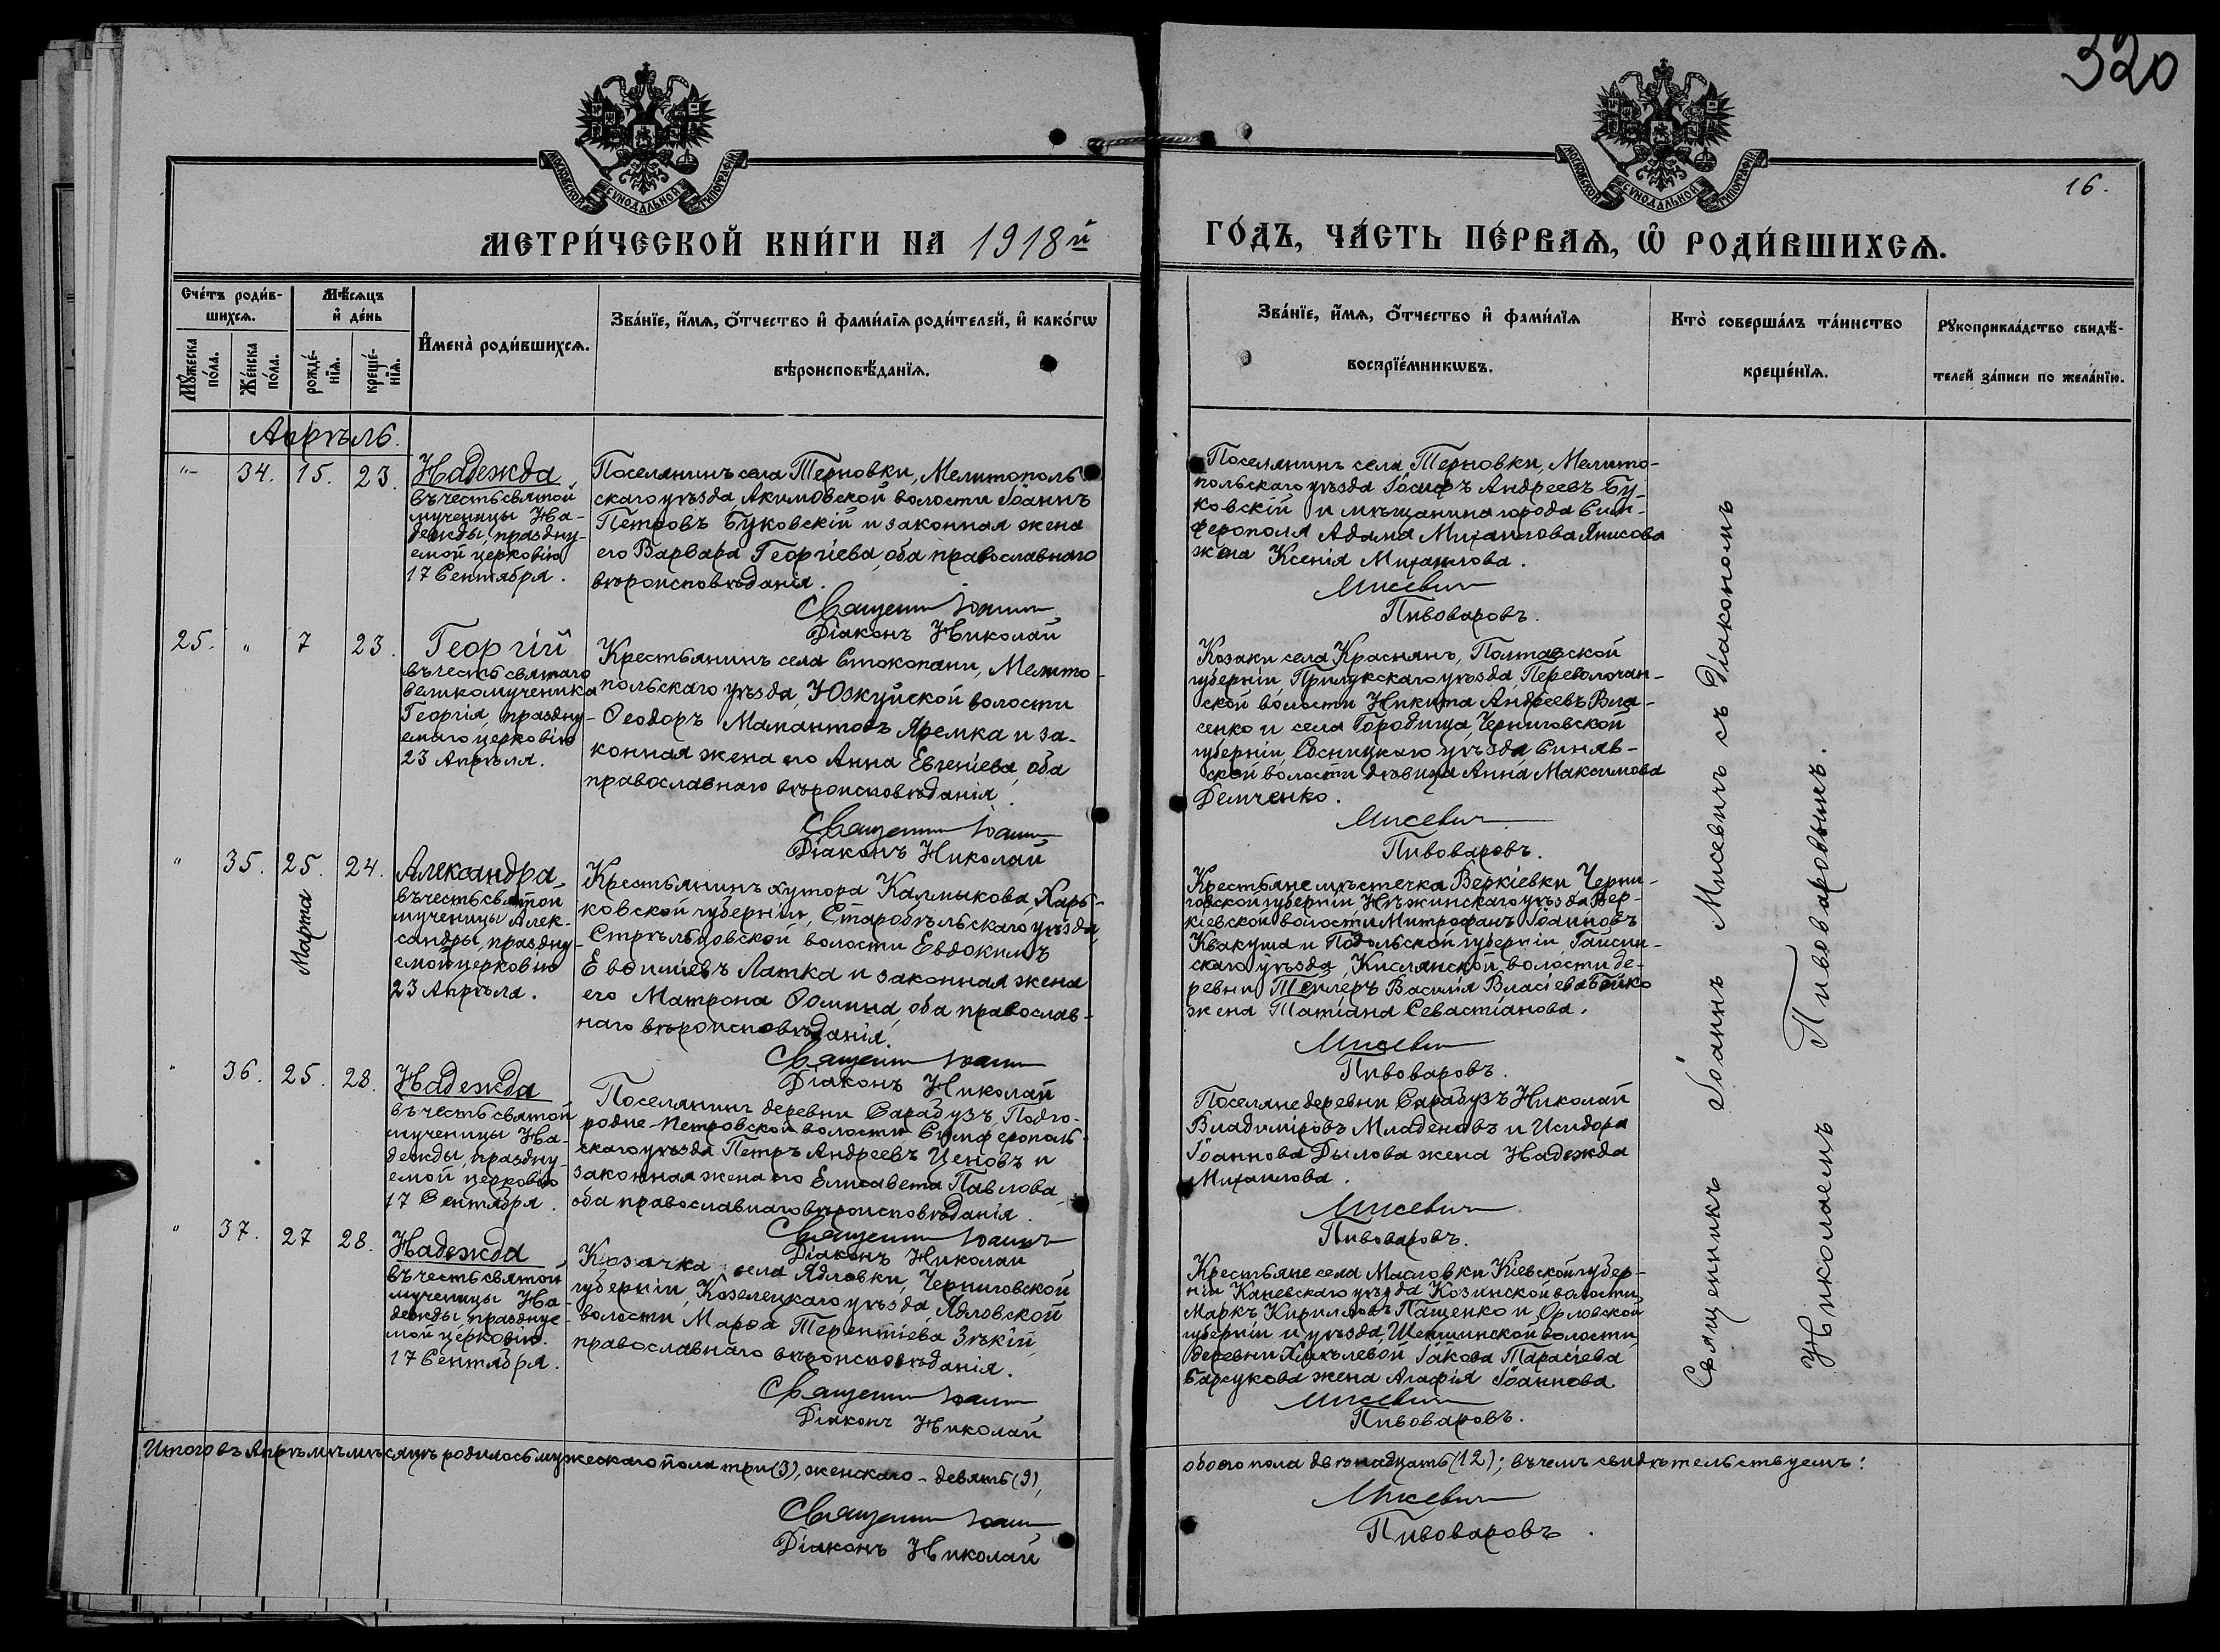 320
МОСКОВСКОЙ СѴНОДАЛЬНОЙ ТИПОГРАФІИ
МОСКОВСКОЙ СѴНОДАЛЬНОЙ ТИПОГРАФІИ
16.
МЕТРИ́ЧЕСКОЙ КНИ́ГИ НА 1918й
ГО́ДЪ, ЧА́СТЬ ПЕ́РВАѦ, Ѡ҆ РОДИ́ВШИХСѦ.
Сче́тъ роди́в-
шихсѧ.
Мꙋ́жеска
по́ла.
Же́нска
по́ла.
Мѣ́сѧцъ
и҆ де́нь
рожде́-
нїѧ.
креще́-
нїѧ.
И҆мена̀ роди́вшихсѧ.
Зва́нїе, и҆́мѧ, ѻ҆́тчество и҆ фами́лїѧ роди́телей, и҆ како́гѡ
вѣроисповѣ́данїѧ.
Зва́нїе, и҆́мѧ, ѻ҆́тчество и҆ фами́лїѧ
воспрїе́мникѡвъ.
Кто̀ соверша́лъ та́инство
креще́нїѧ.
Рꙋкоприкла́дство свидѣ́-
телей за́писи по жела́нїю.
Апрѣль.
"- 34. 15. 23.
Надежда
въ честь святой
мученицы На-
дежды, праздну-
емой церковію
17 Сентября.
Поселянинъ села Терновки, Мелитополь-
скаго уѣзда, Акимовской волости Іоаннъ
Петровъ Буковскій и законная жена
его Варвара Георгіева, оба православнаго
вѣроисповѣданія.
Священн Іоанн
Діаконъ Николай
Поселянинъ села Терновки, Мелито-
польскаго уѣзда Іосифъ Андреевъ Бу-
ковскій и мѣщанина города Сим-
ферополя Адама Михаилова Янисова
жена Ксенія Михаилова.
Мисевич
Пивоваровъ.
25. " 7 23.
Георгій
въ честь святаго
великомученика
Георгія, праздну-
емаго церковію
23 Апрѣля.
Крестьянинъ села Стокопани, Мелито-
польскаго уѣзда, Юзкуйской волости
Ѳеодоръ Мамантовъ Яремка и за-
конная жена его Анна Евгеніева, оба
православнаго вѣроисповѣданія.
Священн Іоанн
Діаконъ Николай
Козаки села Краснянъ, Полтавской
губерніи Прилукскаго уѣзда, Переволочан-
ской волости Никита Андреевъ Вла-
сенко и села Городища, Черниговской
губерніи, Сосницкаго уѣзда Синяв-
ской волости дѣвица Анна Максимова
Демченко.
Мисевич
Пивоваровъ.
" 35. 25. 24.
Марта
Александра
въ честь святой
мученицы Алек-
сандры, праздну-
емой церковію
23 Апрѣля.
Крестьянинъ хутора Калмыкова, Харь-
ковской губерніи, Старобѣльскаго уѣзда,
Стрѣльцовской волости Евдокимъ
Евѳиміевъ Латка и законная жена
его Матрона Ѳомина, оба православ-
наго вѣроисповѣданія.
Священн Іоанн
Діаконъ Николай
Крестьяне мѣстечка Веркіевки Черни-
говской губерніи Нѣжинскаго уѣзда Вер-
кіевской волости Митрофанъ Іоанновъ
Квакуша и Подольской губерніи Гайсин-
скаго уѣзда, Кислянской волости де-
ревни Теплеръ Василія Власіева Бойко
жена Татіана Севастіанова.
Мисевич
Пивоваровъ.
" 36. 25. 28.
Надежда
въ честь святой
мученицы На-
дежды, праздну-
емой церковію
17 Сентября.
Поселянинъ деревни Сарабузъ, Подго-
родне-Петровской волости Симферополь-
скаго уѣзда Петръ Андреевъ Ценовъ и
законная жена его Елисавета Павлова,
оба православнаго вѣроисповѣданія.
Священн Іоанн
Діаконъ Николай
Поселяне деревни Сарабузъ Николай
Владиміровъ Младеновъ и Исидора
Іоаннова Дылова жена Надежда
Михаилова.
Мисевич
Пивоваровъ.
" 37. 27 28.
Надежда
въ честь святой
мученицы На-
дежды, праздпуе-
мой церковію.
17 Сентября.
Козачка села Ядловки, Черниговской
губерніи, Козелецкаго уѣзда, Ядловской
волости, Марѳа Терентіева Зѣкій,
православнаго вѣроисповѣданія.
Священн Іоанн
Діаконъ Николай
Крестьяне села Масловки Кіевской губер-
ніи Каневскаго уѣзда Козинской волости
Маркъ Кирилловъ Пащенко и Орловской
губерніи и уѣзда, волости,
деревни Іакова Тарасіева
Барсукова жена Агафія Іоаннова
Мисевич
Пивоваровъ.
Священникъ Іоаннъ Мисевичъ съ діакономъ
Николаемъ Пивоваровымъ.
Итого въ Апрѣлѣ мѣсяцѣ родилось мужескаго пола три (3), женскаго - девять (9),
обоего пола двѣнадцать (12); въ чемъ свидѣтельствуемъ:
Священн Іоанн
Діаконъ Николай
Мисевич
Пивоваровъ.